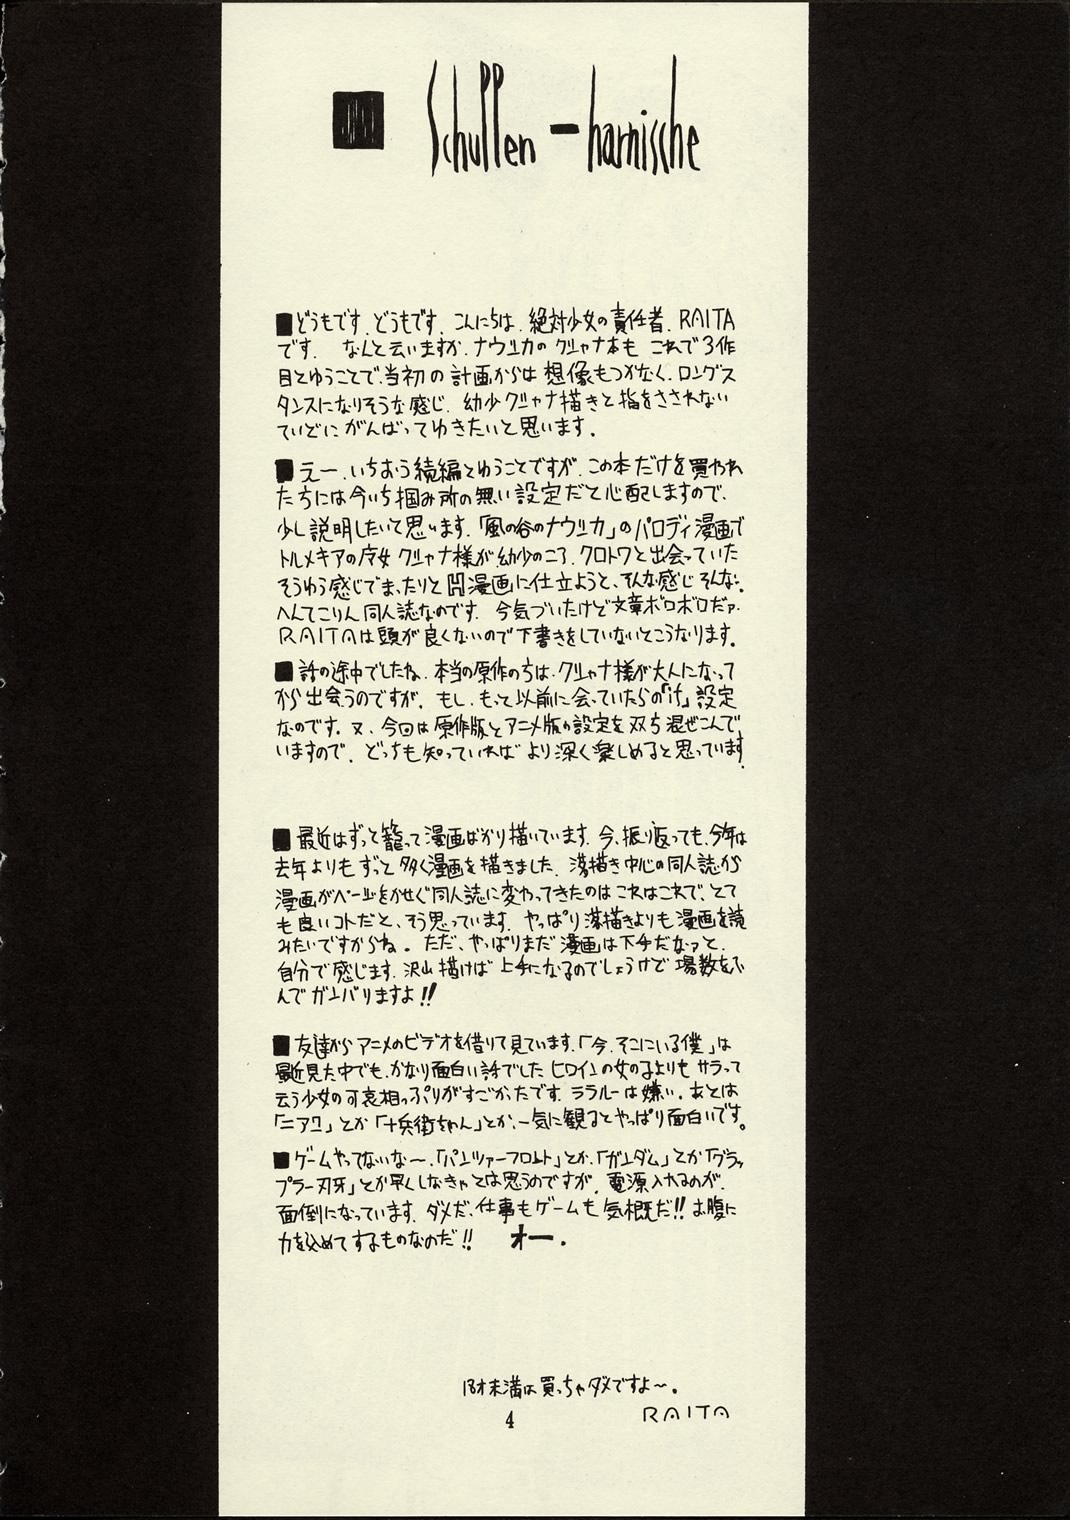 ■ Schuppen-harnische
■どうもです、どうもです。こんにちは、絶対少女の責任者、RAITA
です。 なんと云いますか、ナウシカのクシャナ本も これで3作
目とゆうことで、当初の計画からは想像もつかなく、ロングス
タンスになりそうな感じ。幼少クシャナ描きと指をさされない
ていどにがんばってゆきたいと思います。
■えー、いちおう続編とゆうことですが、この本だけを買われ
たちには今いち掴み所の無い設定だと心配しますので、
少し説明したいと思います。「風の谷のナウシカ」のパロディ漫画で
トルメキアの皇女クシャナ様が幼少のころ、クロトワと出会っていた
そうゆう感じでまったりと 漫画に仕立ようと、そんな感じ そんな、
へんてこりん同人誌なのです。 今気づいたけど文章ボロボロだァ、
RAITAは頭が良くないので下書きをしていないとこうなります。
■話の途中でしたね、本当の原作のちは、クシャナ様が大人になって
から出会うのですが、もし、もっと以前に会っていたらの「if」設定
なのです。又、今回は原作版とアニメ版の設定を双ち混ぜこんで
いますので、どっちも知っていればより深く楽しめると思っています。
■最近はずっと籠って漫画ばかり描いています。今、振り返っても、今年は
去年よりもずっと多く漫画を描きました。落描き中心の同人誌から
漫画がページをかせぐ同人誌に変わってきたのはこれはこれで、とて
も良いコトだと、そう思っています。やっぱり落描きよりも漫画を読
みたいですからね。ただ、やっぱりまだ漫画は下手だなァと、
自分で感じます。沢山描けば上手になるのでしょうけど場数をふ
んでガンバりますよ!!
■友達からアニメのビデオを借りて見ています。「今、そこにいる僕」は
最近見た中でも、かなり面白い話でした ヒロインの女の子よりも サラって
云う少女の可哀相っぷりがすごかったです。ララルーは嫌い。あとは
「ニア7」とか「十兵衛ちゃん」とか、一気に観るとやっぱり面白いです。
■ゲームやってないな〜、「パンツァーフロント」とか、「ガンダム」とか「グラッ
プラー刃牙」とか早くしなきゃとは思うのですが、電源入れるのが、
面倒になっています。ダメだ、仕事もゲームも気概だ!!お腹に
力を込めてするものなのだ!! オー。
18才未満は買っちゃダメですよ〜。
4 RAITA